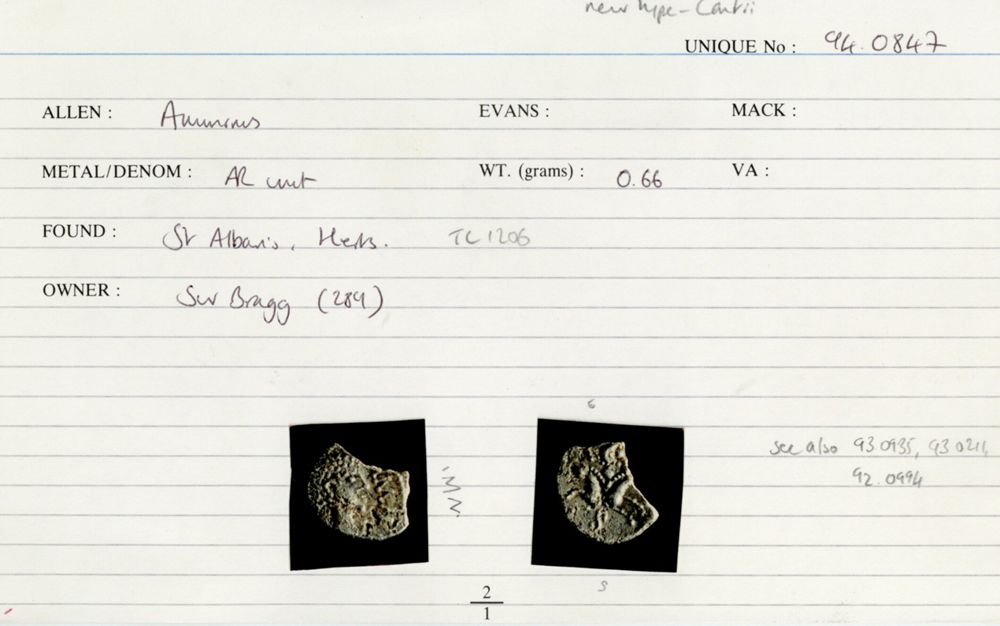 new type - Cantii
UNIQUE No : 94.0847
ALLEN : Amminus EVANS : MACK :
METAL/DENOM : AR unit WT. (grams) : 0.66 VA :
FOUND : St Albans, Herts. TL 1206
OWNER : Sur Bragg (289)
see also 93.0935, 93.0211,
92.0994
2
1